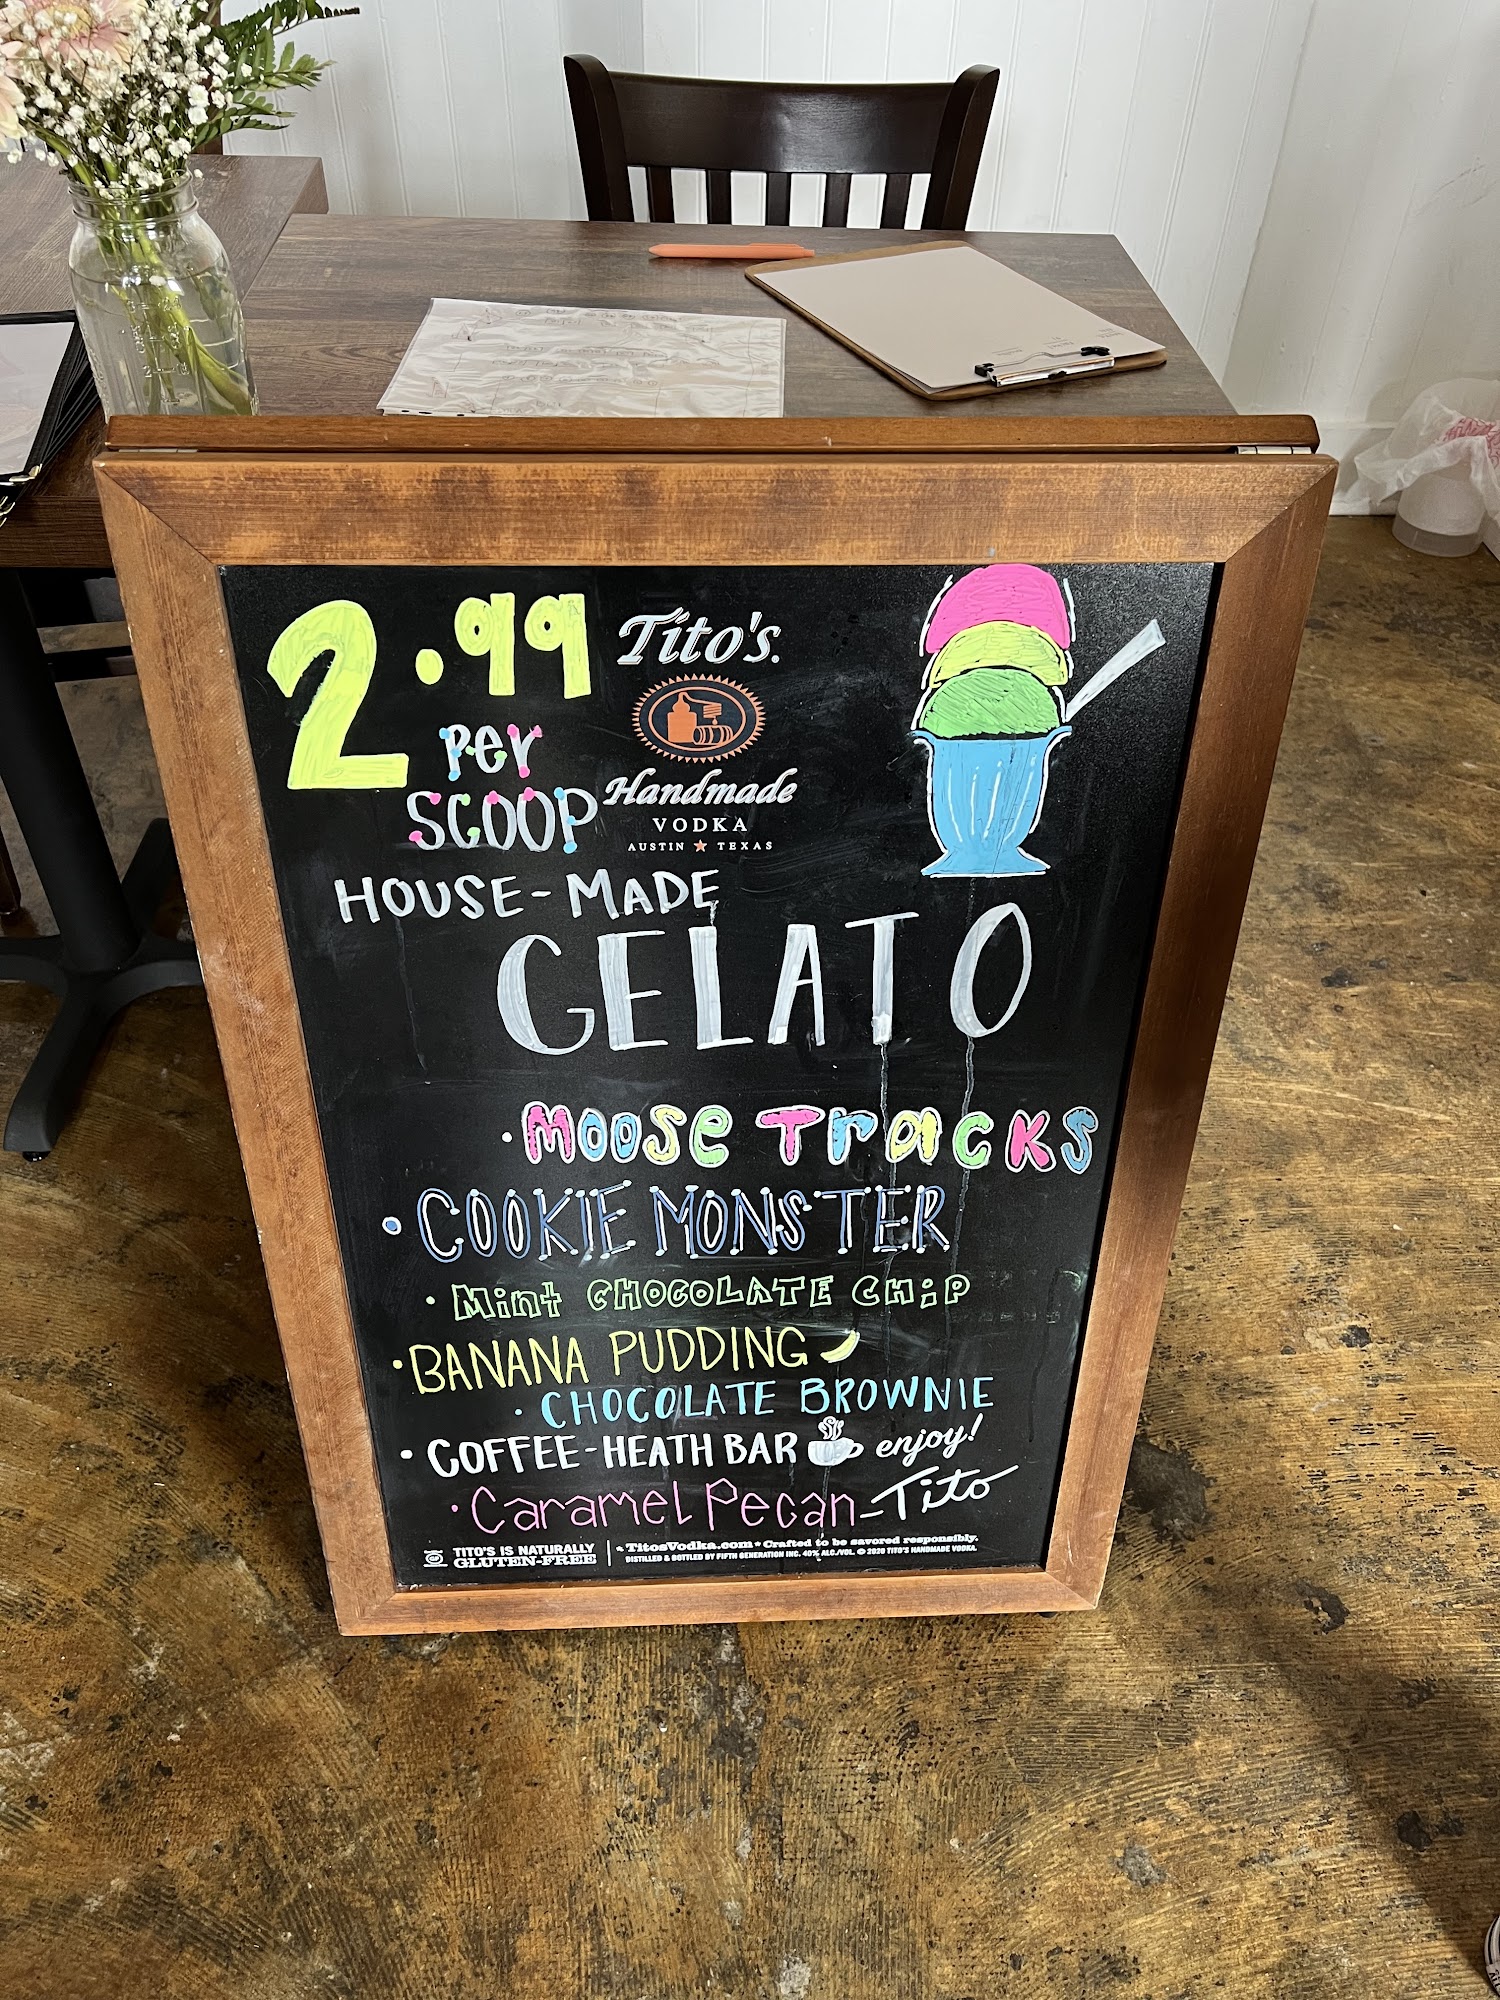 2.99
per
SCOOP
Tito's
Handmade
VODKA
AUSTIN ★ TEXAS
HOUSE-MADE
GELATO
• MOOSE TRACKS
• COOKIE MONSTER
• Mint CHOCOLATE CHiP
• BANANA PUDDING
• CHOCOLATE BROWNIE
• COFFEE-HEATH BAR
enjoy!
• Caramel Pecan
-Tito
TITO'S IS NATURALLY
GLUTEN-FREE
• TitosVodka.com • Crafted to be savored responsibly.
DISTILLED & BOTTLED BY FIFTH GENERATION INC. 40% ALC./VOL. © 2020 TITO'S HANDMADE VODKA.